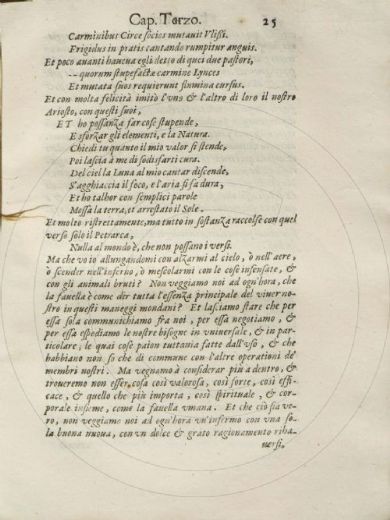 Cap. Terzo. 25
Carminibus Circe socios mutauit Vlissi.
Frigidus in pratis cantando rumpitur anguis.
Et poco auanti haueua egli detto di quei due pastori,
--quorum stupefactæ carmine lynces
Et mutata suos requierunt flumina cursus.
Et con molta felicità imitò l'uno & l'altro di loro il nostro
Ariosto, con questi suoi,
ET ho possanza far cose stupende,
E sforzar gli elementi, e la Natura.
Chiedi tu quanto il mio valor si stende,
Poi lascia à me di sodisfarti cura.
Del ciel la Luna al mio cantar discende,
S'agghiaccia il foco, e l'aria si fa dura,
Et ho talhor con semplici parole
Mossa la terra, et arrestato il Sole.
Et molto ristrettamente, ma tutto in sostanza raccolse con quel
verso solo il Petrarca,
Nulla al mondo è, che non possano i versi.
Ma che vo io allungandomi con alzarmi al cielo, ò nell'aere,
ò scender nell'inferno, ò mescolarmi con le cose insensate, &
con gli animali bruti? Non veggiamo noi ad ogn'hora, che
la fauella è come dir tutta l'essenza principale del viuer no-
stro in questi maneggi mondani? Et lasciamo stare che per
essa sola communichiamo fra noi, per essa negotiamo, &
per essa espediamo le nostre bisogne in vniuersale, & in par-
ticolare; le quai cose paion tuttonia fatte dall'vso, & che
habbiano non so che di commune con l'altre operationi de'
membri nostri. Ma vegnamo à considerar più a dentro, &
troueremo non esser cosa così valorosa, così forte, così effi-
cace, & quello che più importa, così spirituale, & cor-
porale insieme, come la fauella vmana. Et che ciò sia ve-
ro, non veggiamo noi ad ogn'hora vn'infermo con una so-
la buona nuoua, con vn dolce & grato ragionamento riha-
uersi,